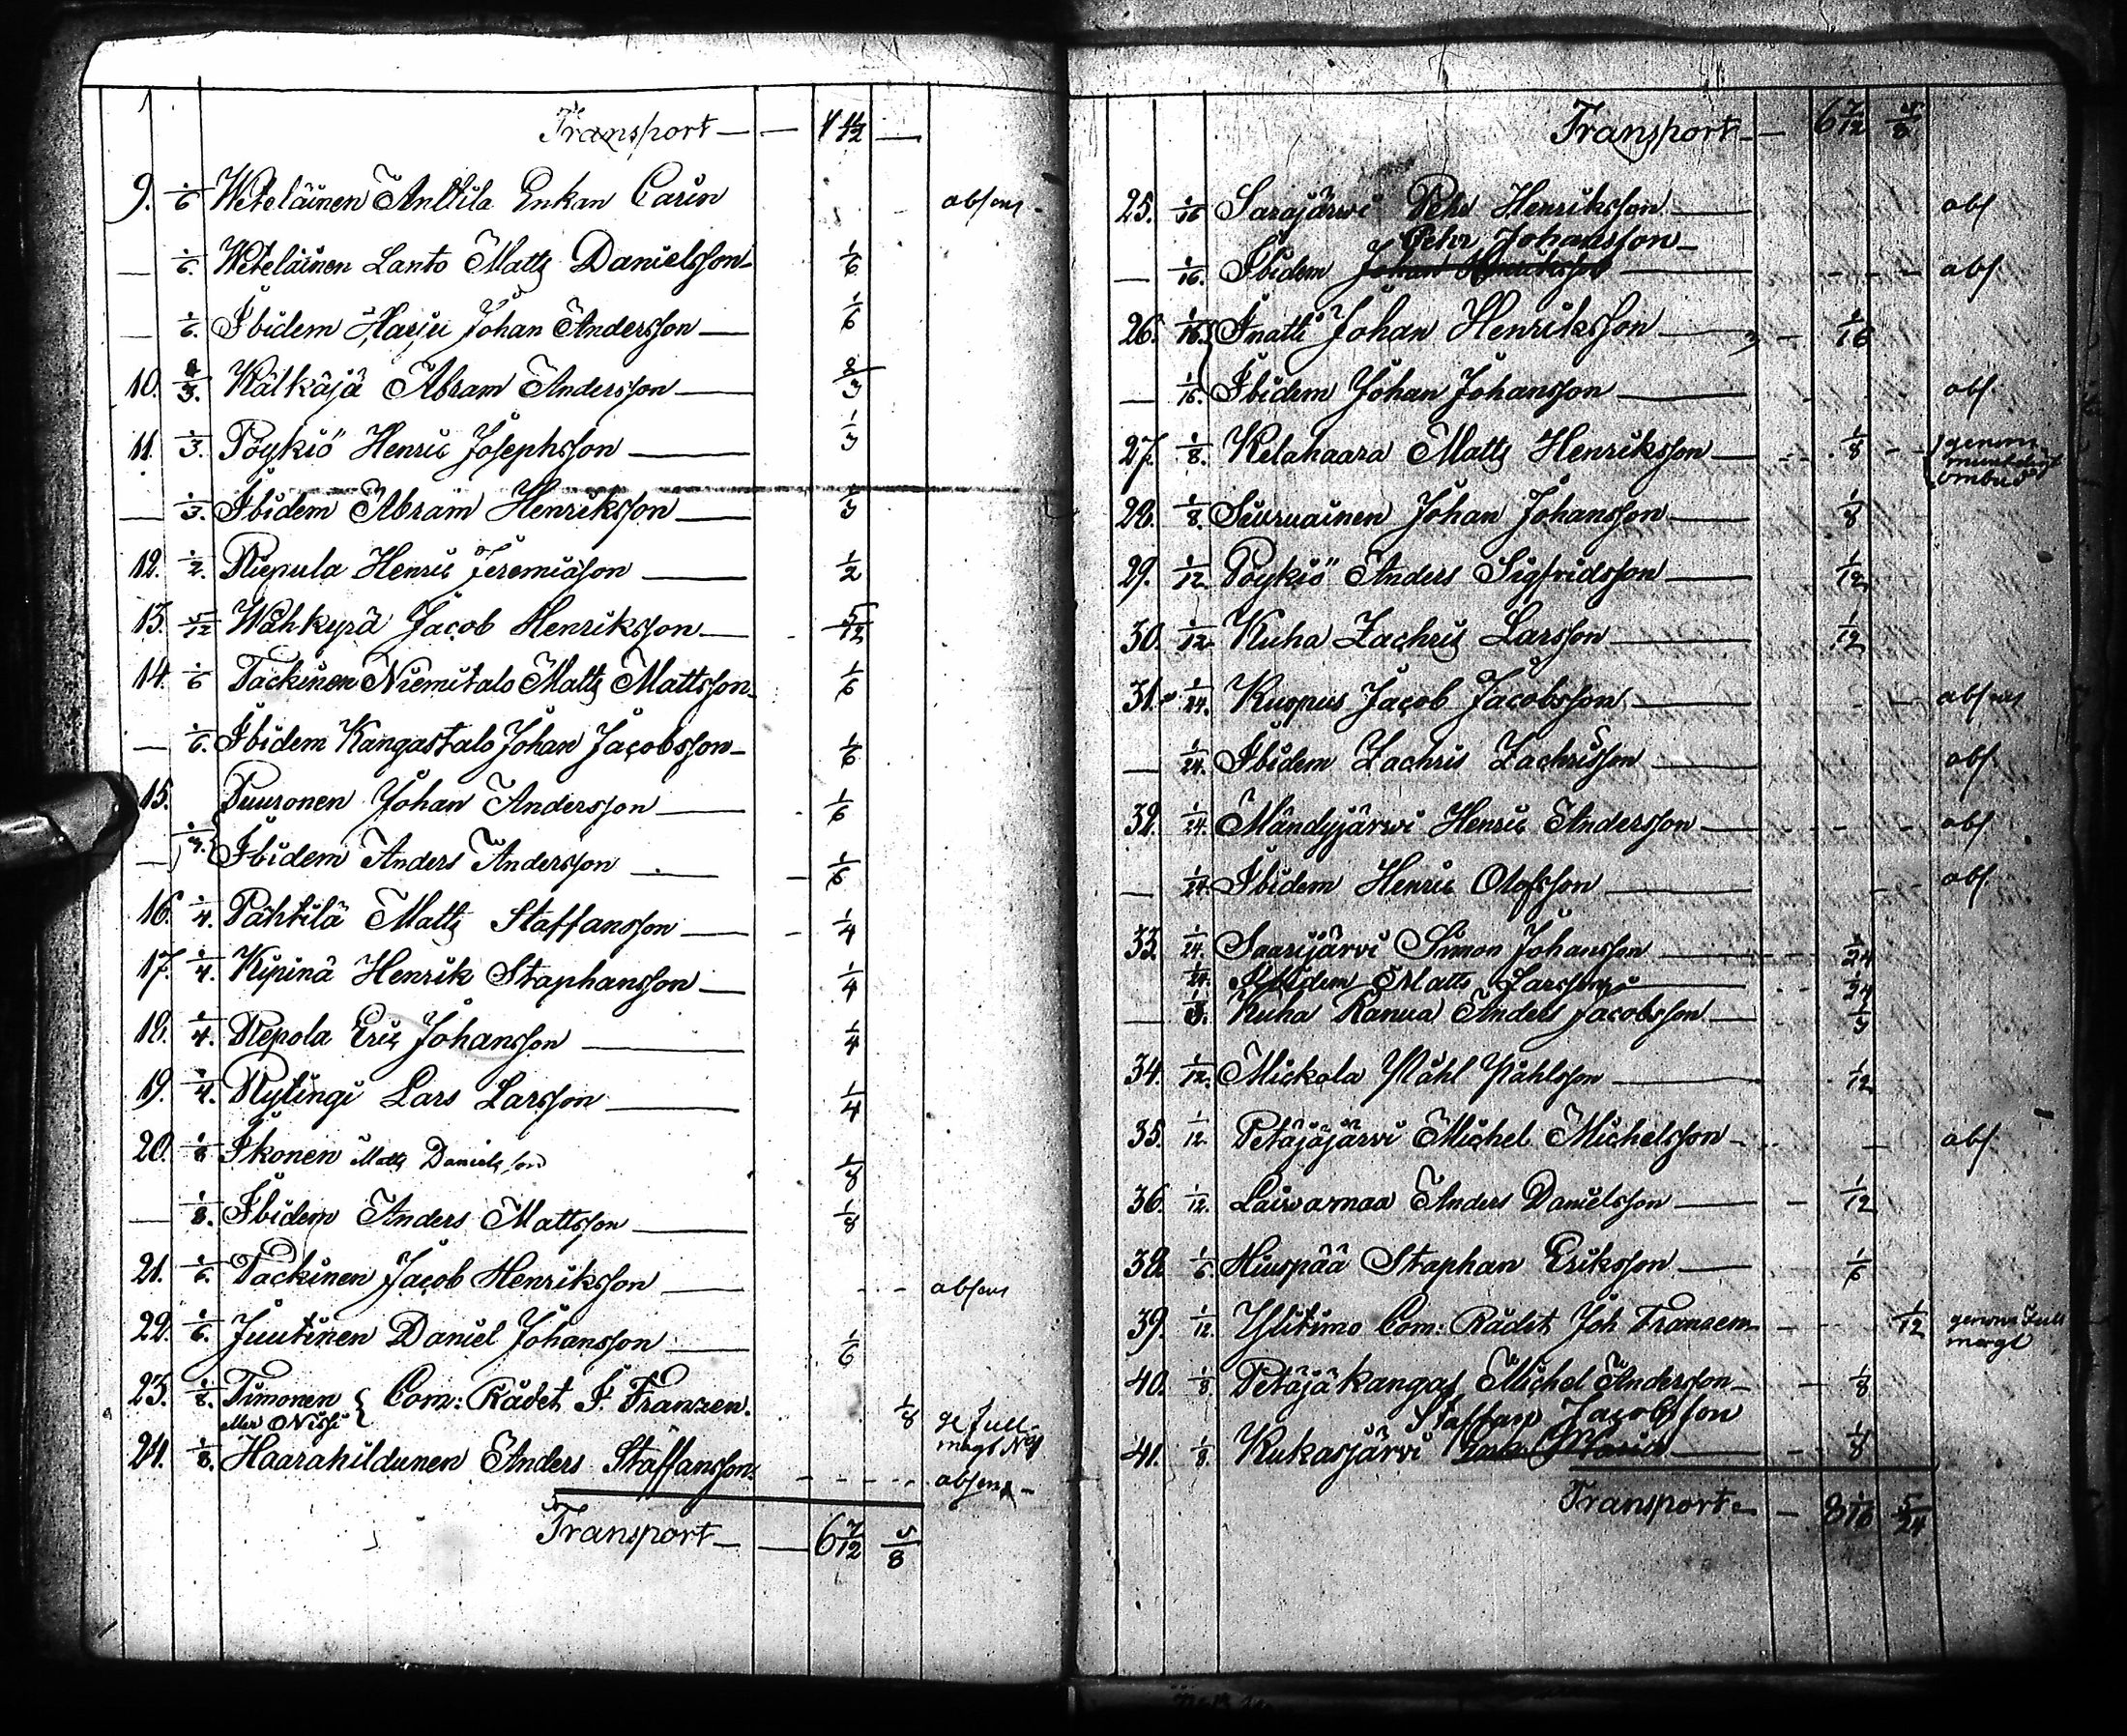 Transport — — 1 11/12 —
9. 1/6 Weteläinen Anttila Enkan Carin absens
— 1/6. Weteläinen Lanto Matts Danielsson — 1/6
— 1/6. Ibidem Harju Johan Andersson — 1/6
10. 2/3. Kälkäjä Abram Andersson — 2/3
11. 1/3. Pöykiö Henric Josephsson — 1/3
— 1/3. Ibidem Abram Henriksson — 1/3
12. 1/2. Riepula Henric Jeremiasson — 1/2
13. 5/12 Wähkyrä Jacob Henriksson — 5/12
14. 1/6 Tackinen Niemitalo Matts Mattsson — 1/6
— 1/6. Ibidem Kangastalo Johan Jacobsson — 1/6
15. Puuronen Johan Andersson — 1/6
— Ibidem Anders Andersson — 1/6
16. 1/4. Pähtilä Matts Staffansson — 1/4
17. 1/4. Kipinä Henrik Staphansson — 1/4
18. 1/4. Repola Eric Johansson — 1/4
19. 1/4. Rytingi Lars Larsson — 1/4
20. 1/8 Ikonen Matts Danielsson 1/8
— 1/8. Ibidem Anders Mattsson — 1/8
21. 1/6. Tackinen Jacob Henriksson — absens
22. 1/6. Juutinen Daniel Johansson — 1/6
23. 1/8. Timonen { Com: Rådet F. Franzen. 1/8 ge full
eller Nissi magt No1
24. 1/8. Haarahildunen Anders Staffansson. absens —
Transport — — 6 7/12 1/8
Transport — 6 7/12 1/8
25. 1/16 Sarajärwi Pehr Henriksson — abs
Pehr Johansson —
— 1/16. Ibidem — abs
26. 1/16. Inatti Johan Henriksson — 1/16
— 1/16. Ibidem Johan Johansson — abs.
27. 1/8. Kelahaara Matts Henriksson — 1/8 genom
munteligt
ombud
28. 1/8. Siuruainen Johan Johansson — 1/8
29. 1/12 Pöykiö Anders Sigfridsson — 1/12
30. 1/12. Kuha Zachris Larsson — 1/12
31. 1/24. Kuopus Jacob Jacobsson — absens
— 1/24. Ibidem Zachris Zachrisson — abs.
32. 1/24. Mändyjärwi Henric Andersson — abs
— 1/24. Ibidem Henric Olofsson — abs.
33. 1/24. Saarijärvi Simon Johansson — 1/24
1/24. Ibidem Matts Larsson — 1/24
— 1/3. Kuha Ranua Anders Jacobsson — 1/3
34. 1/12. Mickola Påhl Påhlsson — 1/12
35. 1/12. Petäjäjärvi Michel Michelsson — abs.
36. 1/12. Laiwamaa Anders Danielsson — 1/12
38. 1/6. Hiuspää Staphan Eriksson — 1/6
39. 1/12. Ylitimo Com: Rådet Joh Franzem 1/12 genom full
magt
40. 1/8. Petäjäkangas Michel Andersson — 1/8
Staffan Jacobsson
41. 1/8. Kukasjärvi — 1/8
Transport — 8 1/16 5/24